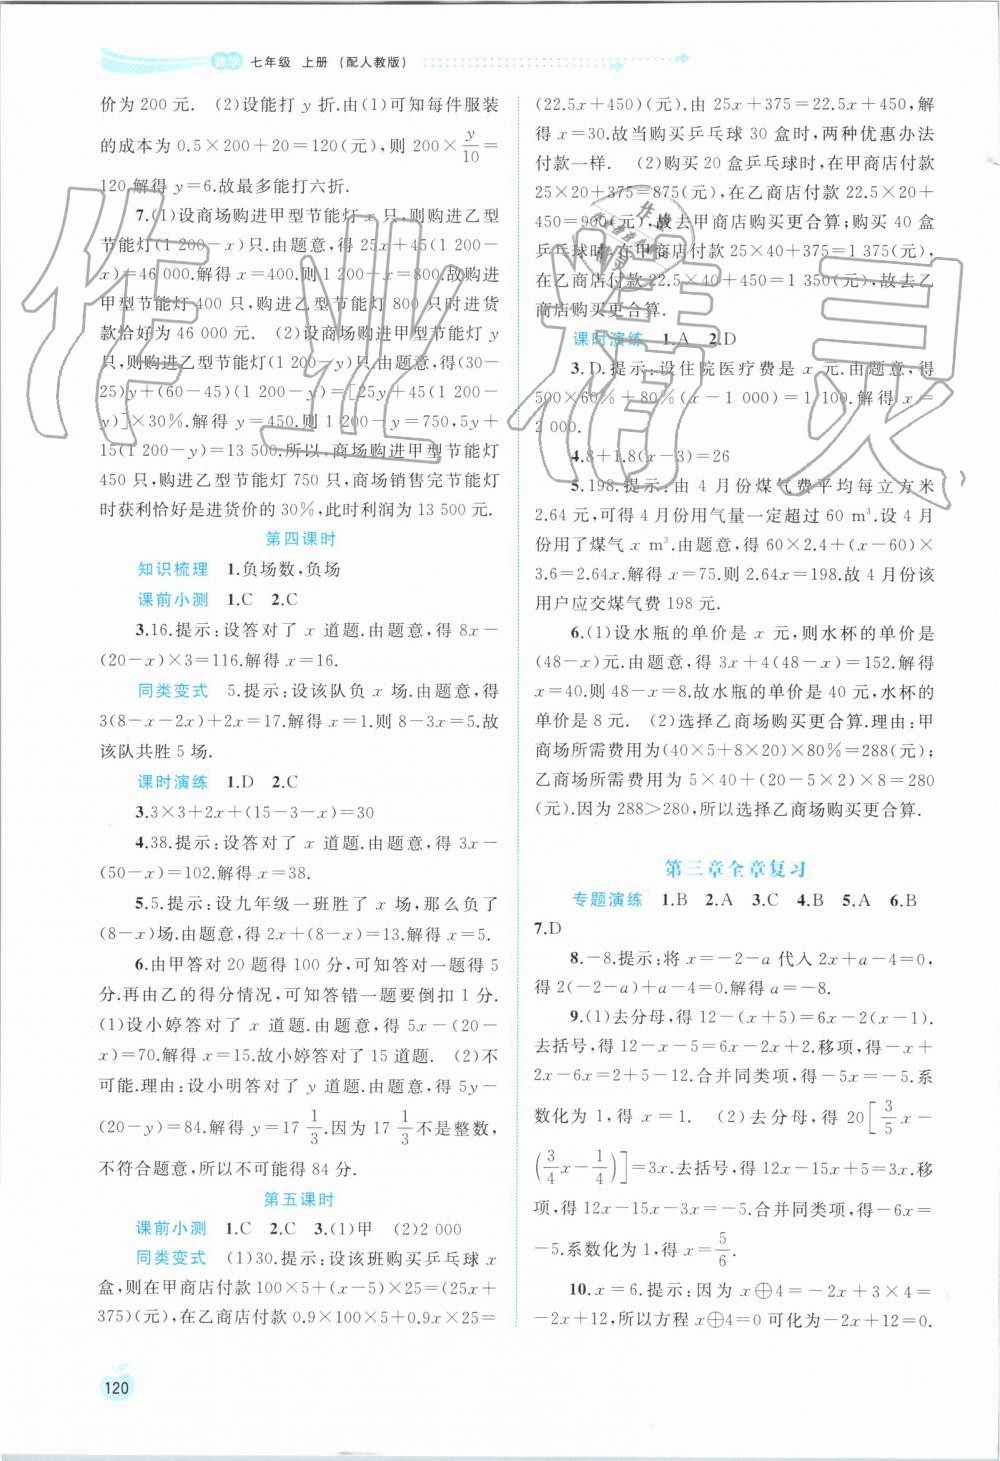 数学 七年级 上册 (配人教版)
价为 200 元. (2)设能打 y 折.由(1)可知每件服装
的成本为 0.5×200+20=120(元),则 200×y/10=
120.解得 y=6.故最多能打六折.
7.(1)设商场购进甲型节能灯 x 只,则购进乙型
节能灯(1 200-x)只.由题意,得 25x+45(1 200-
x)=46 000.解得 x=400.则 1 200-x=800.故购进
甲型节能灯 400 只,购进乙型节能灯 800 只时进货
款恰好为 46 000 元. (2)设商场购进甲型节能灯 y
只,则购进乙型节能灯(1 200-y)只.由题意,得(30-
25)y+(60-45)(1 200-y)=[25y+45(1 200-
y)]×30%.解得 y=450.则 1 200-y=750,5y+
15(1 200-y)=13 500.所以,商场购进甲型节能灯
450 只,购进乙型节能灯 750 只,商场销售完节能灯
时获利恰好是进货价的 30%,此时利润为 13 500 元.
第四课时
知识梳理 1.负场数,负场
课前小测 1.C 2.C
3.16.提示:设答对了 x 道题.由题意,得 8x-
(20-x)×3=116.解得 x=16.
同类变式 5.提示:设该队负 x 场.由题意,得
3(8-x-2x)+2x=17.解得 x=1.则 8-3x=5.故
该队共胜 5 场.
课时演练 1.D 2.C
3.3×3+2x+(15-3-x)=30
4.38.提示:设答对了 x 道题.由题意,得 3x-
(50-x)=102.解得 x=38.
5.5.提示:设九年级一班胜了 x 场,那么负了
(8-x)场.由题意,得 2x+(8-x)=13.解得 x=5.
6.由甲答对 20 题得 100 分,可知答对一题得 5
分.再由乙的得分情况,可知答错一题要倒扣 1 分.
(1)设小婷答对了 x 道题.由题意,得 5x-(20-
x)=70.解得 x=15.故小婷答对了 15 道题. (2)不
可能.理由:设小明答对了 y 道题.由题意,得 5y-
(20-y)=84.解得 y=17 1/3.因为 17 1/3 不是整数,
不符合题意,所以不可能得 84 分.
第五课时
课前小测 1.C 2.C 3.(1)甲 (2)2 000
同类变式 (1)30.提示:设该班购买乒乓球 x
盒,则在甲商店付款 100×5+(x-5)×25=(25x+
375)(元),在乙商店付款 0.9×100×5+0.9x×25=
(22.5x+450)(元).由 25x+375=22.5x+450,解
得 x=30.故当购买乒乓球 30 盒时,两种优惠办法
付款一样. (2)购买 20 盒乒乓球时,在甲商店付款
25×20+375=875(元),在乙商店付款 22.5×20+
450=900(元),故去甲商店购买更合算;购买 40 盒
乒乓球时,在甲商店付款 25×40+375=1 375(元),
在乙商店付款 22.5×40+450=1 350(元),故去乙
商店购买更合算.
课时演练 1.A 2.D
3.D.提示:设住院医疗费是 x 元.由题意,得
500×60%+80%(x-1 000)=1 100.解得 x=
2 000.
4.8+1.8(x-3)=26
5.198.提示:由 4 月份煤气费平均每立方米
2.64 元,可得 4 月份用气量一定超过 60 m³.设 4 月
份用了煤气 x m³.由题意,得 60×2.4+(x-60)×
3.6=2.64x.解得 x=75.则 2.64x=198.故 4 月份该
用户应交煤气费 198 元.
6.(1)设水瓶的单价是 x 元,则水杯的单价是
(48-x)元.由题意,得 3x+4(48-x)=152.解得
x=40.则 48-x=8.故水瓶的单价是 40 元,水杯的
单价是 8 元. (2)选择乙商场购买更合算.理由:甲
商场所需费用为(40×5+8×20)×80%=288(元);
乙商场所需费用为 5×40+(20-5×2)×8=280
(元).因为 288>280,所以选择乙商场购买更合算.
第三章全章复习
专题演练 1.B 2.A 3.C 4.B 5.A 6.B
7.D
8.-8.提示:将 x=-2-a 代入 2x+a-4=0,
得 2(-2-a)+a-4=0.解得 a=-8.
9.(1)去分母,得 12-(x+5)=6x-2(x-1).
去括号,得 12-x-5=6x-2x+2.移项,得-x+
2x-6x=2+5-12.合并同类项,得-5x=-5.系
数化为 1,得 x=1. (2)去分母,得 20[3/5x-
(3/4x-1/4)]=3x.去括号,得 12x-15x+5=3x.移
项,得 12x-15x-3x=-5.合并同类项,得-6x=
-5.系数化为 1,得 x=5/6.
10.x=6.提示:因为 x⊕4=-2x+3×4=
-2x+12,所以方程 x⊕4=0 可化为-2x+12=0.
120
作业精灵